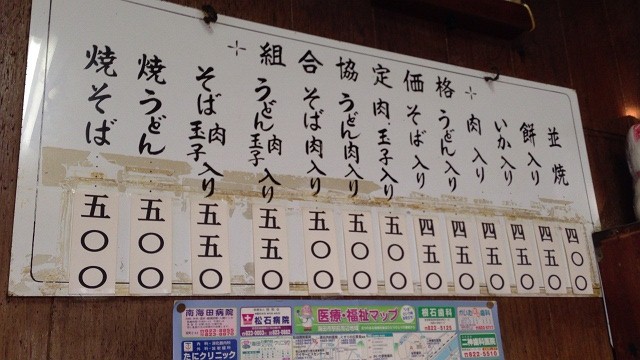 組合協定価格
並焼 四〇〇
餅入り 四五〇
いか入り 四五〇
肉入り 四五〇
うどん入り 四五〇
そば入り 四五〇
肉玉子入り 五〇〇
うどん肉入り 五〇〇
そば肉入り 五〇〇
うどん肉玉子入り 五五〇
そば肉玉子入り 五五〇
焼うどん 五〇〇
焼そば 五〇〇
南海田病院
松石病院
医療・福祉マップ
根石歯科
たにクリニック
二神歯科医院